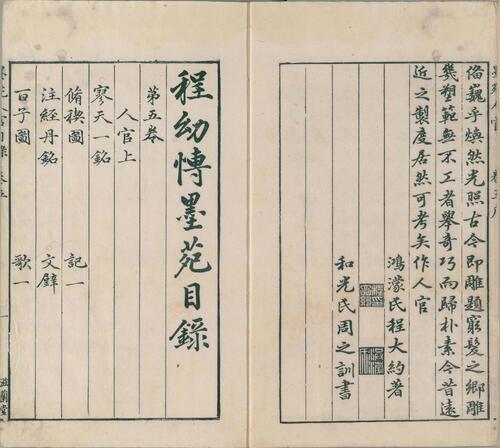 俻巍乎煥然光照古今即雕題窮髮之鄉雕
幾塑範無不工者舉奇巧而歸朴素今昔遠
近之製度居然可考矣作人官
鴻濛民程大約著
和光民周之訓書
程幼愽墨苑目錄
第五卷
人官上
寥天一銘
脩禊圖 記一
注經丹銘 文璧
百子圖 歌一
一 滋蘭堂